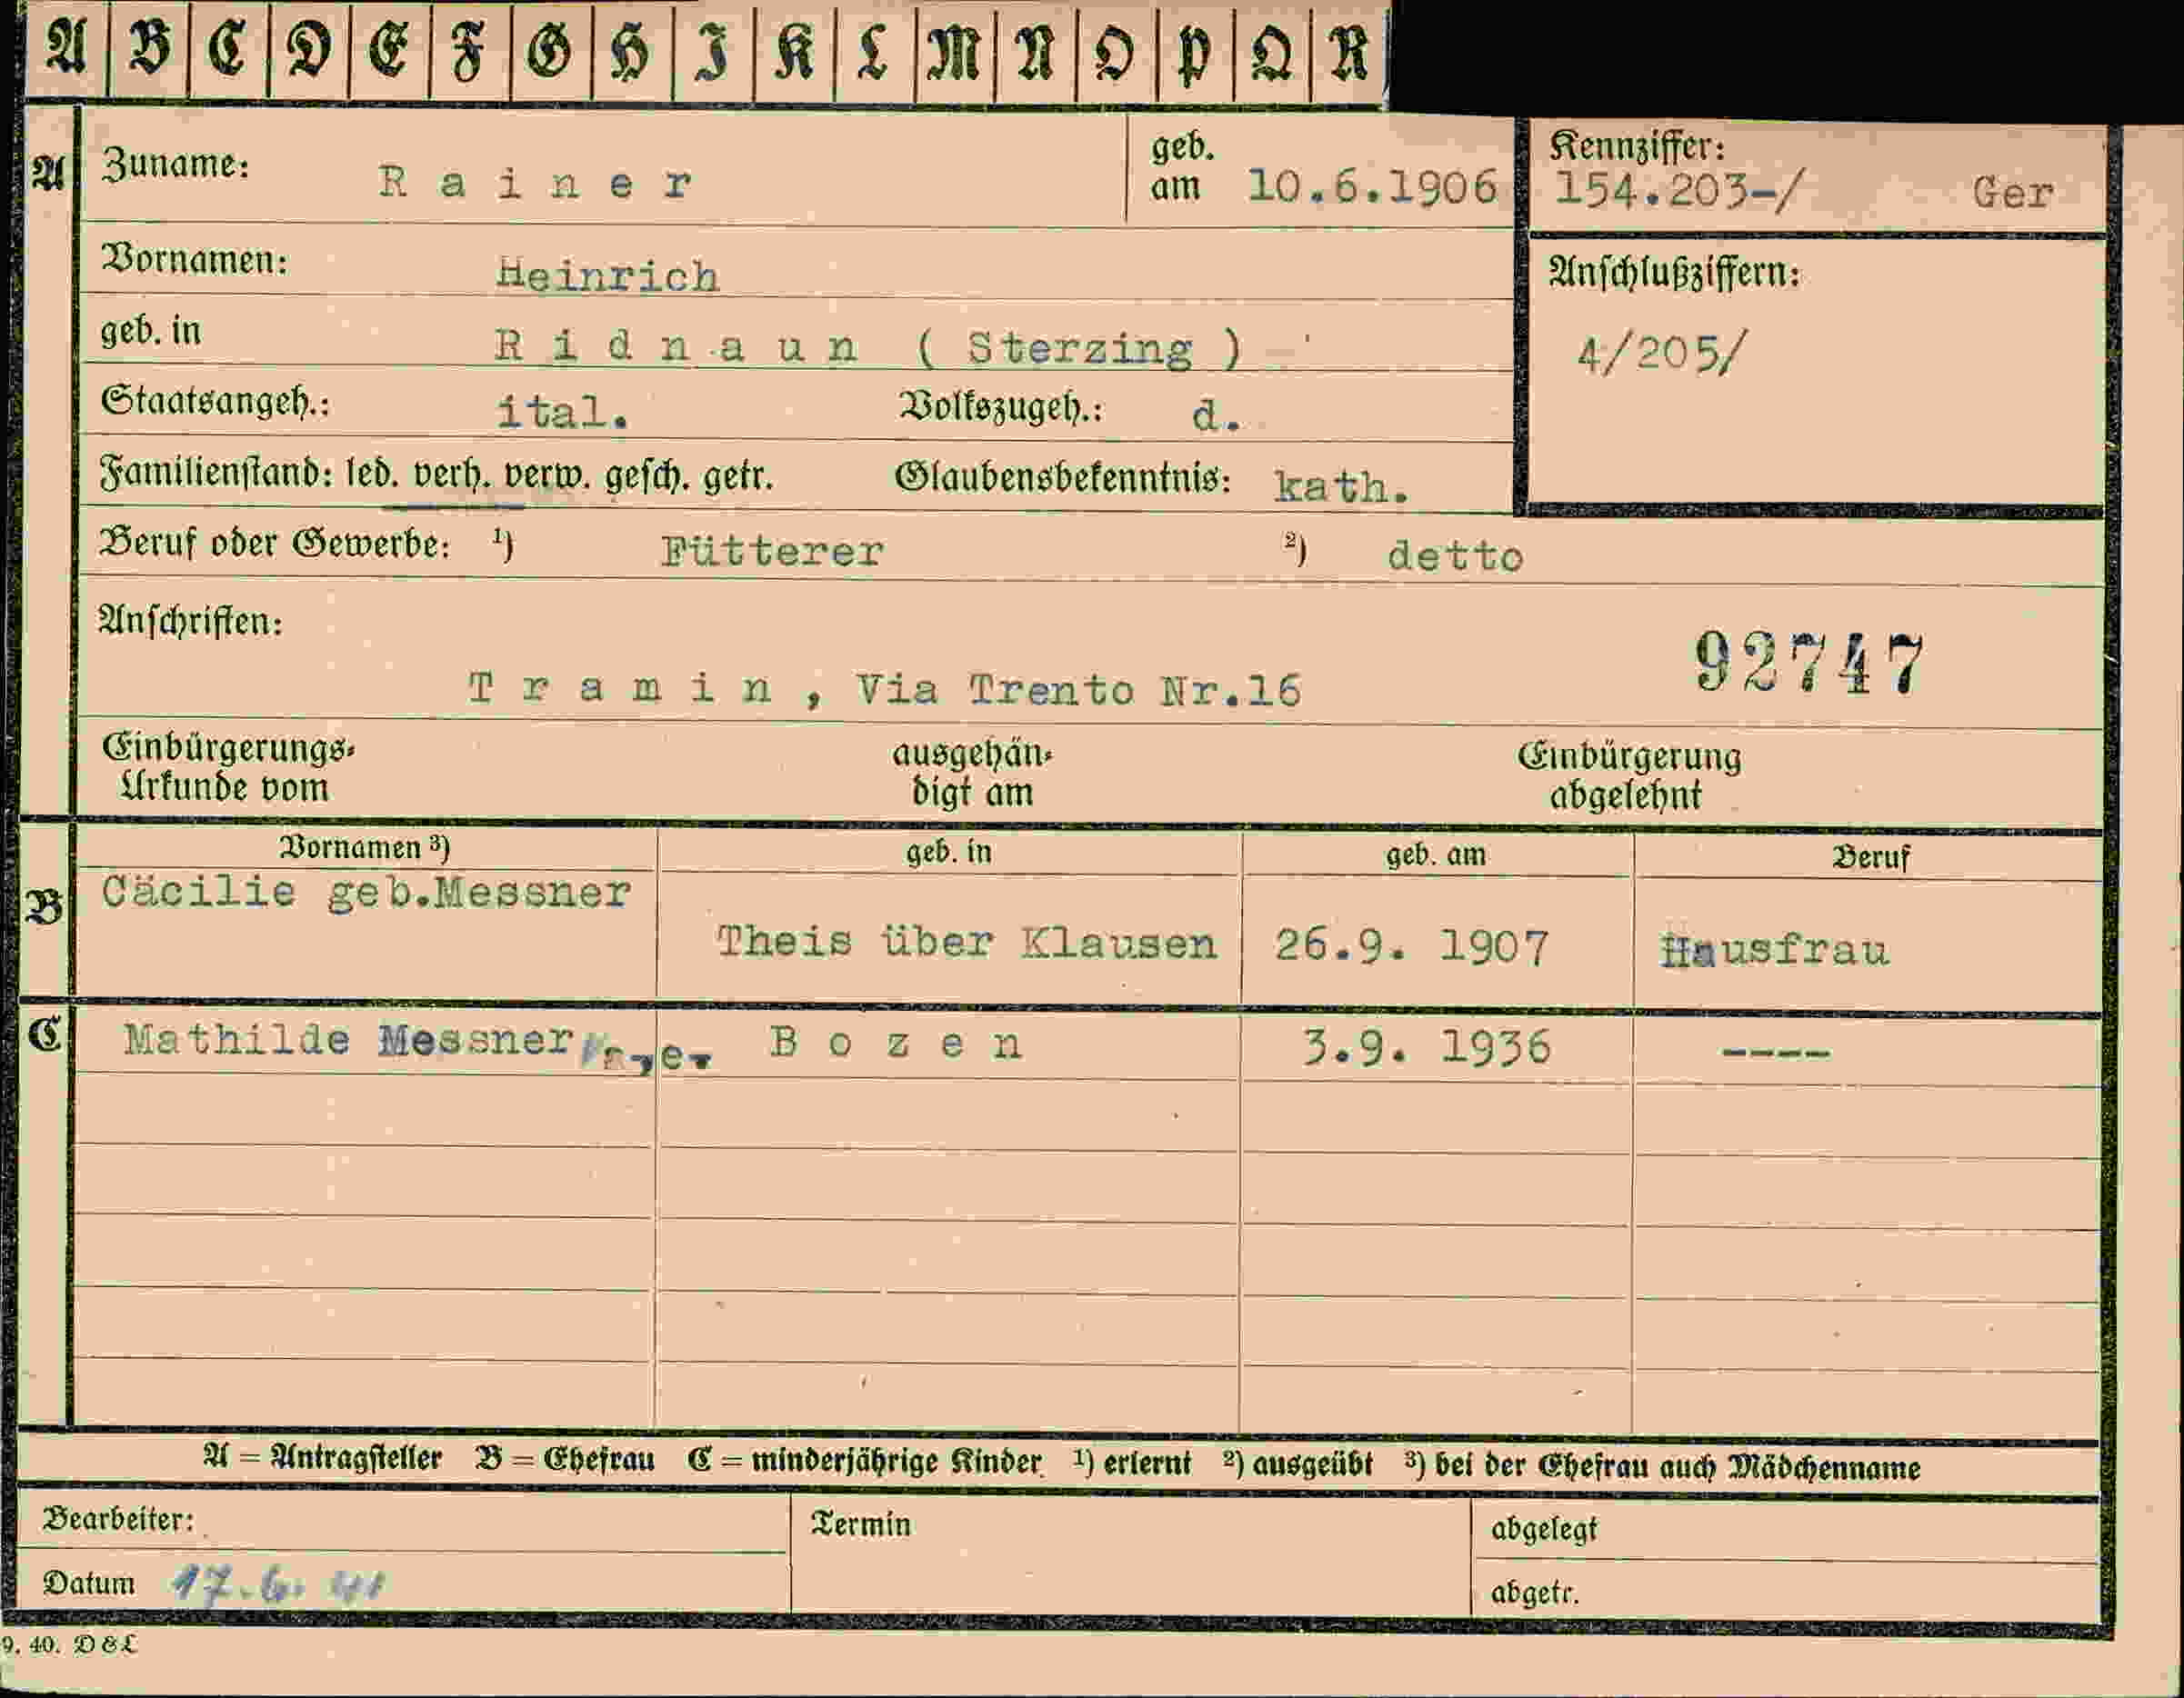 A B C D E F G H I K L M N O P Q R
A Zuname: Rainer geb. am 10.6.1906 Kennziffer: 154.203-/ Ger
Vornamen: Heinrich Anschlußziffern:
geb. in Ridnaun ( Sterzing ) 4/205/
Staatsangeh.: ital. Volkszugeh.: d.
Familienstand: led. verh. verw. gesch. getr. Glaubensbekenntnis: kath.
Beruf oder Gewerbe: 1) Fütterer 2) detto
Anschriften: 92747
Tramin, Via Trento Nr.16
Einbürgerungs- ausgehän- Einbürgerung
Urkunde vom digt am abgelehnt
Vornamen 3) geb. in geb. am Beruf
B Cäcilie geb.Messner
Theis über Klausen 26.9. 1907 Hausfrau
C Mathilde Messner Bozen 3.9. 1936 ----
A = Antragsteller B = Ehefrau C = minderjährige Kinder 1) erlernt 2) ausgeübt 3) bei der Ehefrau auch Mädchenname
Bearbeiter: Termin abgelegt
Datum 17.6. 41 abgetr.
9. 40. D & L